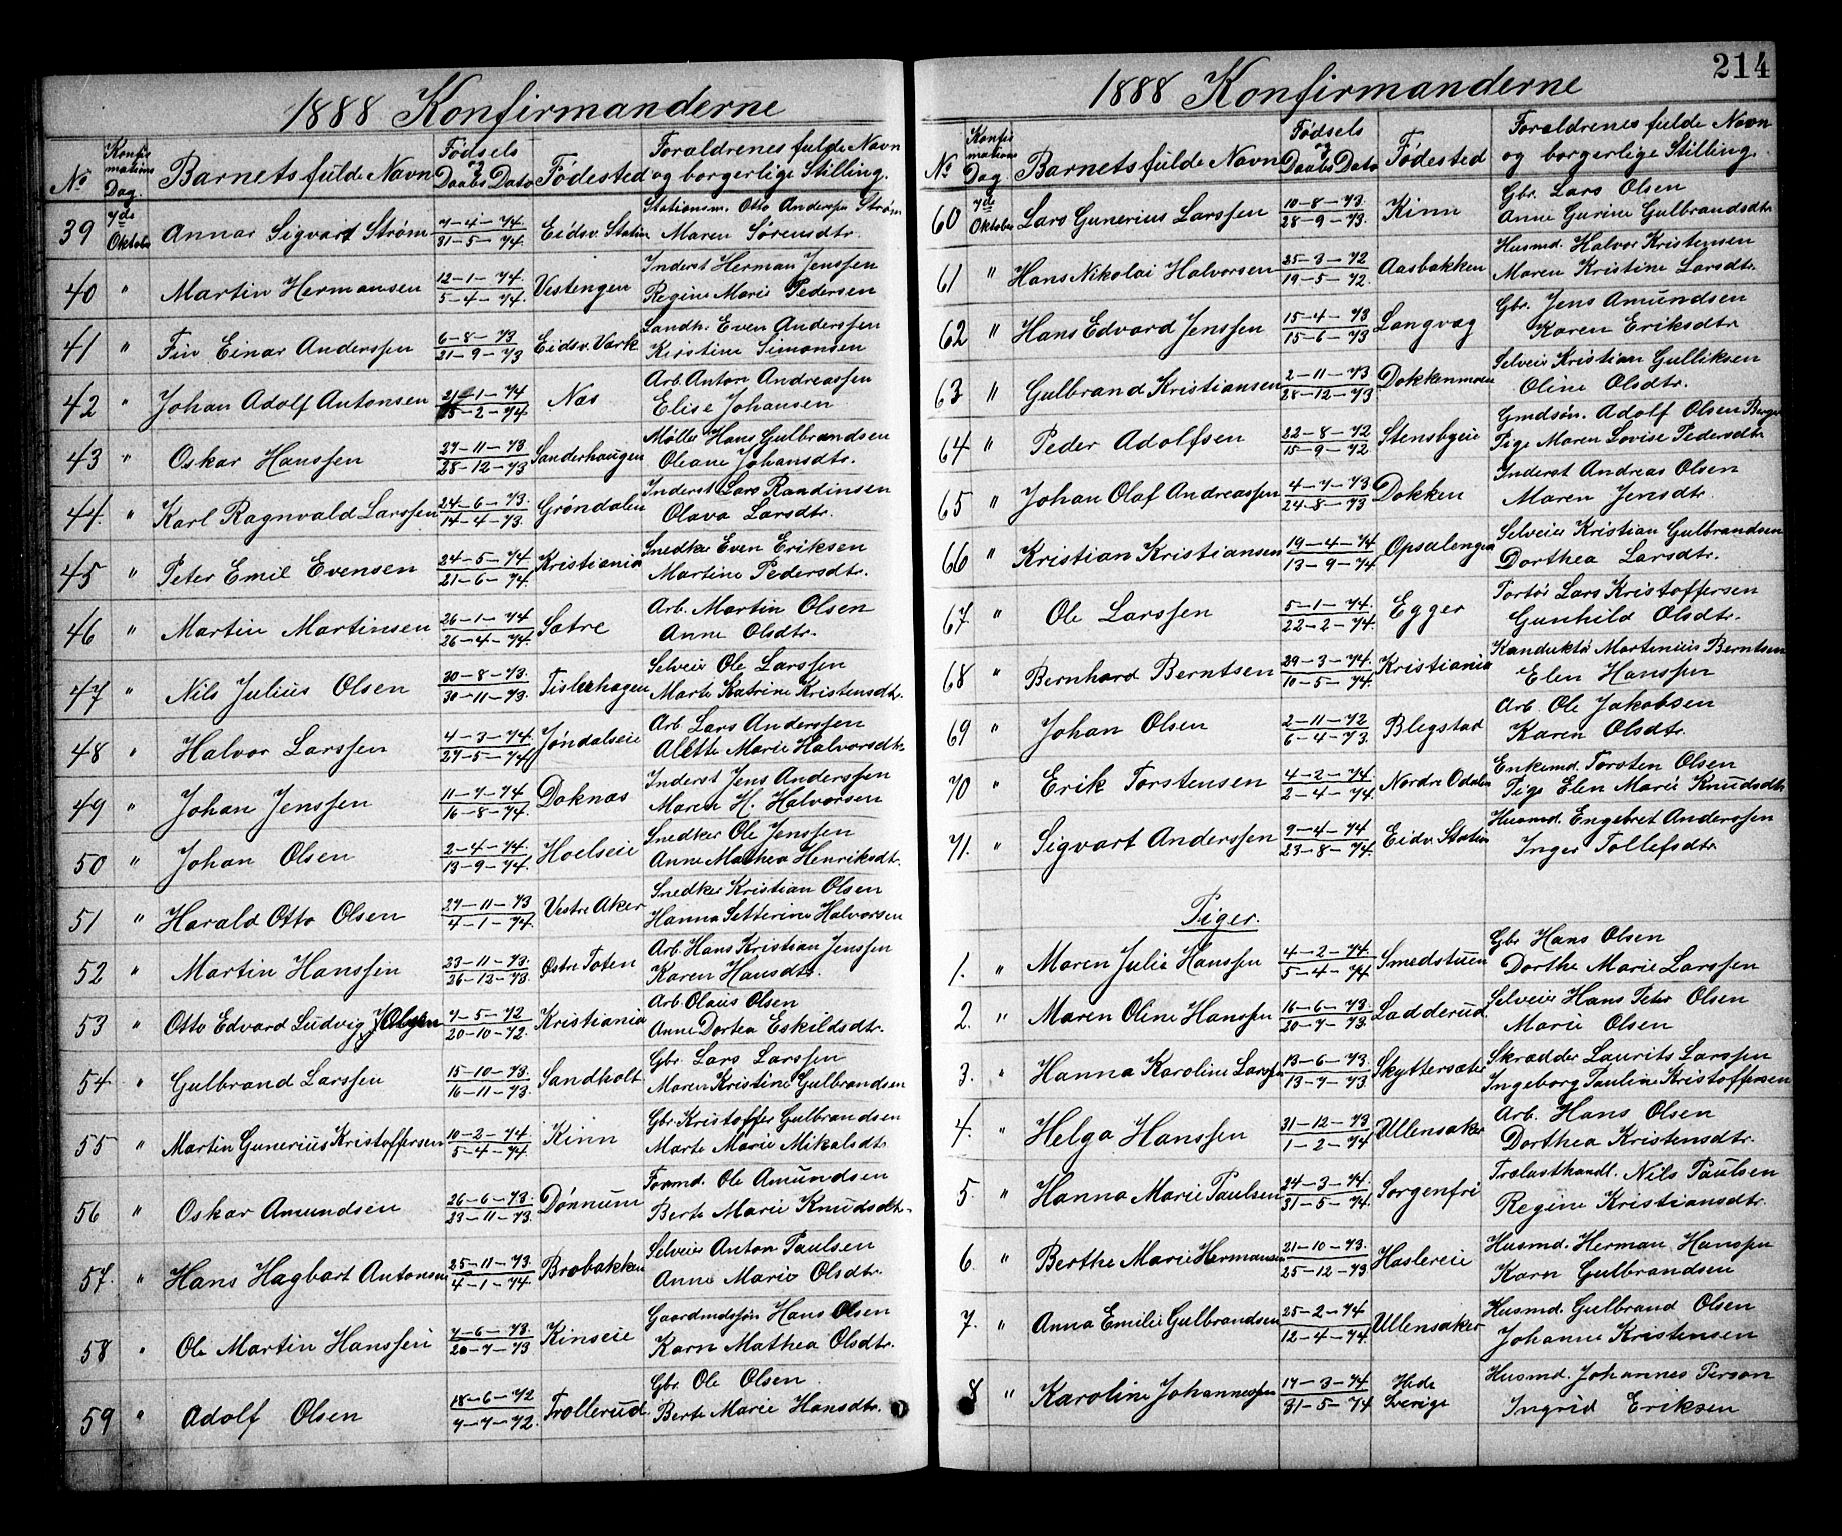 214
1888 Konfirmanderne
No Konfirmations Dag. Barnets fulde Navn Fødsels og Daabs Dato Fødested Forældrenes fulde Navn og borgerlige Stilling.
39 7de Oktober Annar Sigvart Strøm 7-4-74 Eidsv. Station Stationsm. Otto Anderssen Strøm
31-5-74 Maren Sørensdtr.
40 " Martin Hermansen 12-1-74 Vestengen Inderst Herman Jenssen
5-4-74. Regine Marie Pedersen
41 " Fin Einar Anderssen 6-8-73 Eidsv. Værk Landh. Even Anderssen
21-9-73 Kirstine Simonsen
42 " Johan Adolf Antonsen 21-1-74 Næs Arb. Anton Andreassen
-2-74 Elise Johansen
43 " Oskar Hanssen 27-11-73 Sanderhaugen Møller Hans Gulbrandsen
28-12-73 Oleane Johansdtr.
44. " Karl Ragnvald Larssen 24-6-73. Grøndalen Inderst Lars Randinsen
14-4-73. Olava Larsdtr.
45 " Peter Emil Evensen 24-5-74 Kristiania Snedker Even Eriksen
21-6-74. Martine Pedersdtr.
46 " Martin Martinsen 26-1-74 Sætre Arb. Martin Olsen
26-4-74. Anne Olsdtr.
47 " Nils Julius Olsen 30-8-73. Tislerhagen Selveier Ole Larssen
30-11-73. Marte Katrine Kristensdtr.
48 " Halvor Larssen 4-3-74. Jøndalseie Arb. Lars Anderssen
27-5-74 Alette Marie Halvorsdtr.
49 " Johan Jenssen 11-7-74 Doknæs Inderst Jens Anderssen
16-8-74. Maren H. Halvorsen
50 " Johan Olsen 2-4-74. Hoelseie Snedker Ole Jenssen
13-9-74. Anne Mathea Henriksdtr.
51 " Harald Otto Olsen 27-11-73 Vestre Aker Snedker Kristian Olsen
4-1-74. Hanna Setterine Halvorsen
52 " Martin Hanssen 23-11-73. Østre Toten Arb. Hans Kristian Jenssen
26-12-73. Karen Hansdtr.
53 " Otto Edvard Ludvig Olsen 7-5-72 Kristiania Arb. Olaus Olsen
20-10-72. Anne Dortea Eskildsdtr.
54 " Gulbrand Larssen 15-10-73. Sandholt Gbr. Lars Larssen
16-11-73. Maren Kristine Gulbrandsen
55 " Martin Gunerius Kristoffersen 10-2-74 Kinn Gbr. Kristoffer Gulbrandsen
5-4-74 Marte Marie Mikalsdtr.
56 " Oskar Amundsen 26-6-73. Dønnum Formd. Ole Amundsen
23-11-73. Berte Marie Knudsdtr.
57. " Hans Hagbart Antonsen 25-11-73. Brobakken Selveier Anton Paulsen
4-1-74. Anne Marie Olsdtr.
58 " Ole Martin Hanssen 7-6-73. Kinseie Gaardmdssøn Hans Olsen
20-7-73 Karn Mathea Olsdtr.
59 " Adolf Olsen 18-6-72 Trollerud. Gbr. Ole Olsen
7-7-72. Berte Marie Hansdtr.
1888 Konfirmanderne
No Konfirmations Dag. Barnets fulde Navn Fødsels og Daabs Dato Fødested Forældrenes fulde Navn og borgerlige Stilling.
60 7de Oktober Lars Gunerius Larssen 10-8-73. Kinn Gbr. Lars Olsen
28-9-73. Anne Gurine Gulbrandsdtr.
61 " Hans Nikolai Halvorsen 25-3-72 Aasbakken Husmd. Halvor Kristensen
19-5-72. Maren Kristine Larsdtr.
62 " Hans Edvard Jenssen 15-4-73 Langvag Gbr. Jens Amundsen
15-6-73 Karen Eriksdtr.
63 " Gulbrand Kristiansen 2-11-73 Dokkenmoen Selveier Kristian Gulliksen
28-12-73 Oline Olsdtr.
64 " Peder Adolfsen 22-8-72 Stensbyeie Gmdsøn. Adolf Olsen Berger
15-9-72. Pige Maren Lovise Pedersdtr.
65 " Johan Olaf Andreassen 4-7-73 Dokken Inderst Andreas Olsen
24-8-73 Maren Jensdtr.
66 " Kristian Kristiansen 19-4-74 Opsalengen Selveier Kristian Gulbrandsen
13-9-74 Dorthea Larsdtr.
67. " Ole Larssen 5-1-74. Egger Portør Lars Kristoffersen
22-2-74. Gunhild Olsdtr.
68 " Bernhard Berntsen 29-3-74. Kristiania Konduktør Martinius Berntsen
10-5-74. Elen Hanssen
69 " Johan Olsen 2-11-72 Blegstad Arb. Ole Jakobsen
6-4-73. Karen Olsdtr.
70 " Erik Torstensen 4-2-74 Nordre Odalen Enkemd. Torsten Olsen
2-4-74 Pige Elen Marie Knudsdtr.
71. " Sigvart Anderssen 9-4-74 Eidsv. Station Husmd. Engebret Anderssen
23-8-74. Inger Tollefsdtr.
Piger.
1. " Maren Julie Hanssen 4-2-74. Smedstuen Gbr. Hans Olsen
5-4-74 Dorthe Marie Larssen
2. " Maren Oline Hanssen 16-6-73. Ladderud. Selveier Hans Peter Olsen
20-7-73. Marie Olsen
3. " Hanna Karoline Larssen 13-6-73. Skyttersæter Skrædder Laurits Larssen
13-7-73 Ingeborg Pauline Kristoffersen
4. " Helga Hanssen 31-12-73 Ullensaker Arb. Hans Olsen
1-2-74 Dorthea Kristensdtr.
5. " Hanna Marie Paulsen 24-3-74. Sorgenfri Trælasthandl. Nils Paulsen
31-5-74. Regine Kristiansdtr.
6. " Berthe Marie Hermansen 21-10-73. Haslereie Husmd. Herman Hanssen
25-12-73 Karn Gulbrandsen
7. " Anna Emilie Gulbrandsen 25-2-74 Ullensaker Husmd. Gulbrand Olsen
12-4-74. Johanne Kristensen
8 " Karoline Johannessen 17-3-74 Hede Sverige Husmd. Johannes Person
31-5-74 Ingrid Eriksen